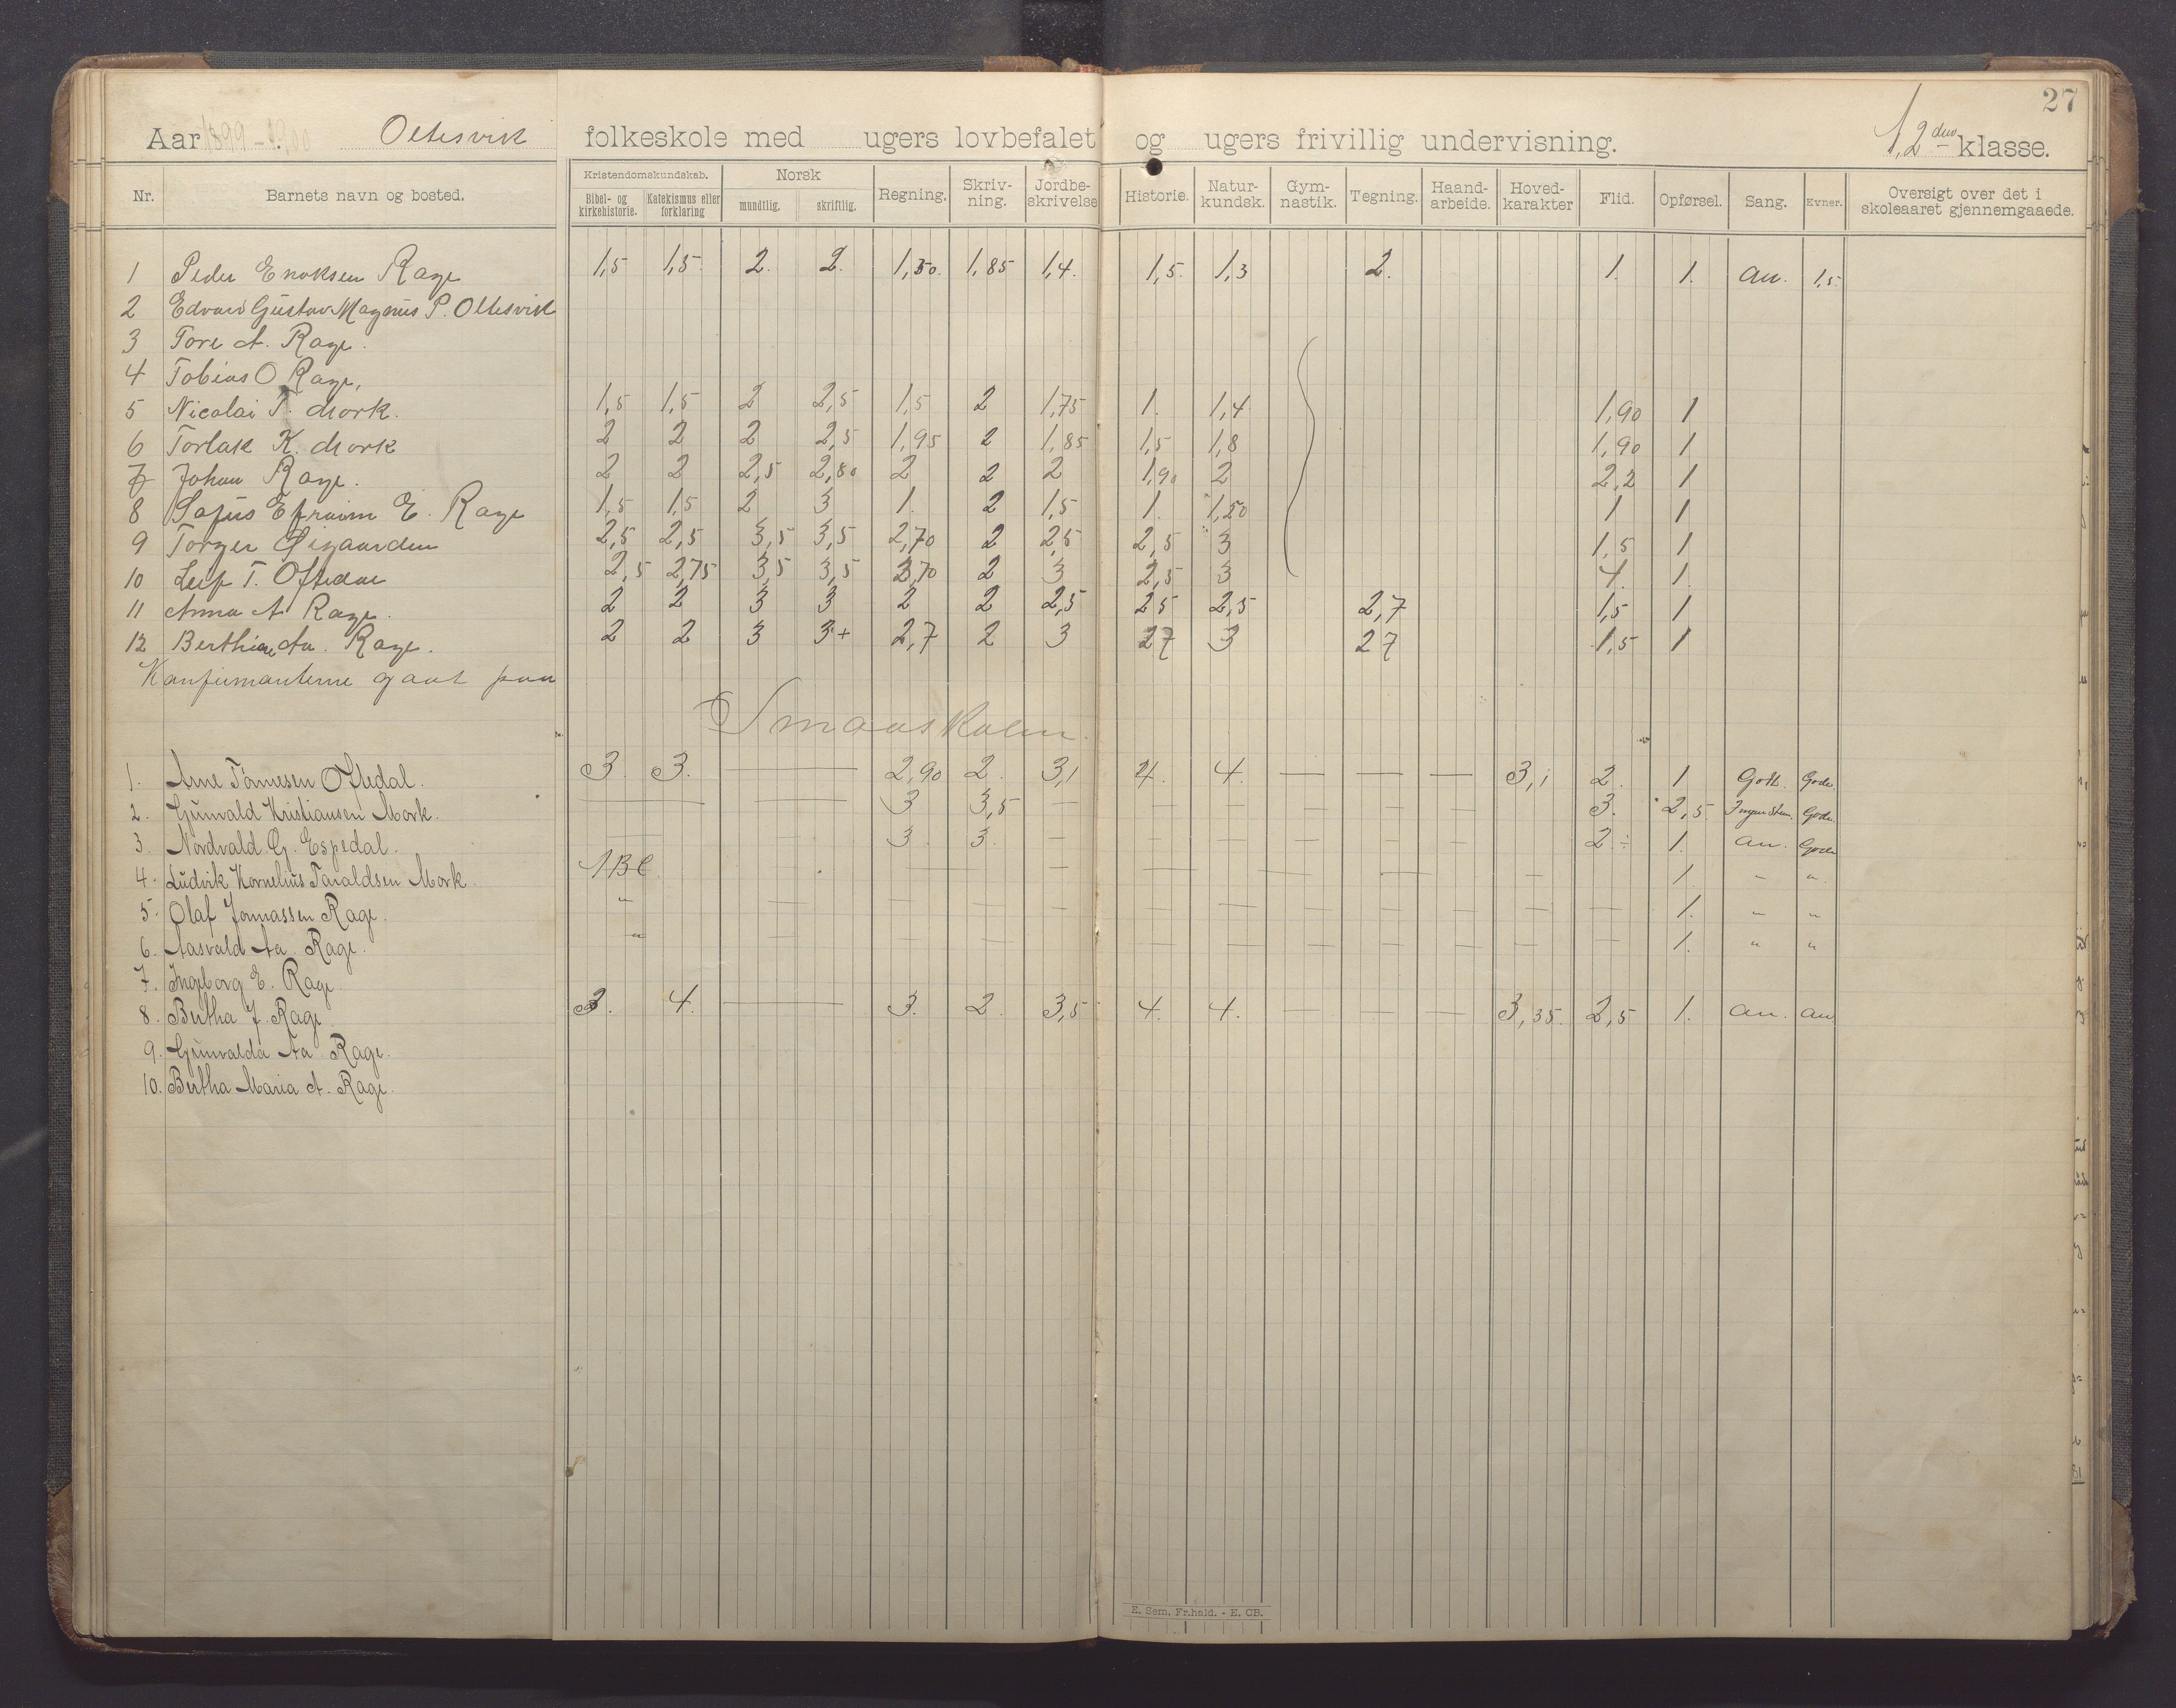 27
Aar 1899-1900 Oltesvik folkeskole med ugers lovbefalet og ugers frivillig undervisning. 1, 2den klasse.
Nr. Barnets navn og bosted. Kristendomskundskab. Bibel- og kirkehistorie. Katekismus eller forklaring Norsk mundtlig. skriftlig. Regning. Skriv-ning. Jordbe-skrivelse Historie. Natur-kundsk. Gym-nastik. Tegning. Haand-arbeide. Hoved-karakter Flid. Opførsel. Sang. Evner. Oversigt over det i skoleaaret gjennemgaaede.
1 Peder Enoksen Rage 1,5 1,5 2. 2. 1,50. 1,85 1,4. 1,5. 1,3 2. 1. 1. an. 1,5.
2 Edvard Gustav Magnus P. Oltesvik
3 Tore A. Rage.
4 Tobias O Rage,
5 Nicolai T. Mork. 1,5 1,5 2 2,5 1,5 2 1,75 1. 1,4 1,90 1
6 Torlak K. Mork 2 2 2 2,5 1,95 2 1,85 1,5 1,8 1,90 1
7 Johan Rage. 2 2 2,5 2,80 2 2 2 1,90 2 2,2 1
8 Sofus Efraim E. Rage 1,5 1,5 2 3 1. 2 1,5 1. 1,50 1 1
9 Torger Øigaarden 2,5 2,5 3,5 3,5 2,70 2 2,5 2,5 3 1,5 1
10 Leif T. Oftedal 2,5 2,75 3,5 3,5 3,70 2 3 2,5 3 4. 1.
11 Anna A Rage. 2 2 3 3 2 2 2,5 2 5 2,5 2,7 1,5 1
12 Berthine Aa. Rage. 2 2 3 3+ 2,7 2 3 27 3 27 1,5 1
Konfirmanterne gaat fraa
Smaaskolen.
1. Arne Tønnesen Oftedal. 3. 3. — 2,90 2. 3,1 4. 4. — — — 3,1 2. 1. Godt. Gode.
2. Gunvald Kristiansen Mork. — — 3 3,5 — — — — — — — 3. 2,5 Ingen Stem. Gode.
3. Nordvald G. Espedal. — — 3. 3. — — — — — — 2÷ 1. an. Gode
4. Ludvik Kornelius Taraldsen Mork. ABC — — — — — — — 1. " "
5. Olaf Jonnassen Rage. " — — — — — — — — — — — 1. " "
6. Aasvald Aa. Rage. " — — — — — — — — — 1. " "
7. Ingeborg E. Rage
8. Bertha J. Rage 3. 4. — 3. 2. 3,5 4. 4. — — — 3,35. 2,5 1. an. an
9. Gunvalda Aa Rage.
10. Bertha Maria A. Rage.
E. Sem. Fr.hald. - E. CB.